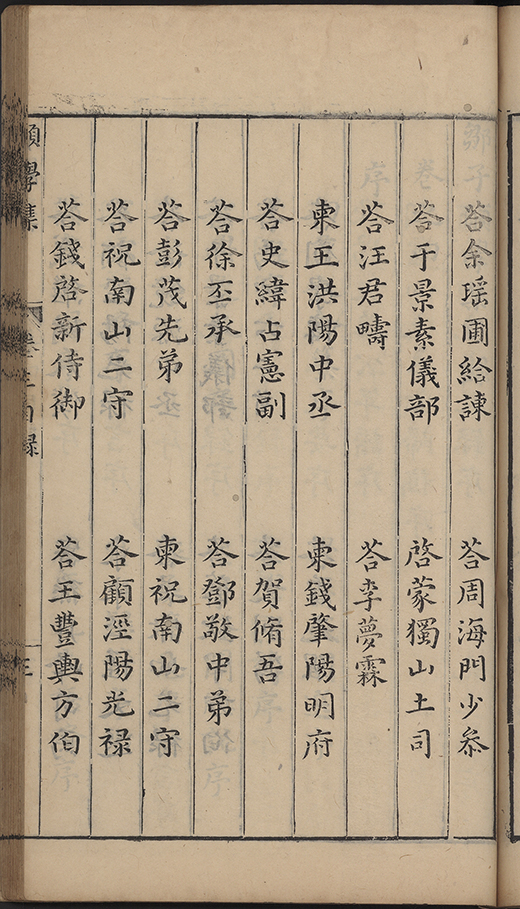 荅余瑶圃給諫 荅周海門少叅
荅于景素儀部 啓蒙獨山土司
荅汪君疇 荅李夢霖
柬王洪陽中丞 柬錢肇陽明府
荅史緯占憲副 荅賀脩吾
荅徐丕承 荅鄧敬中弟
荅彭茂先弟 柬祝南山二守
荅祝南山二守 荅顧涇陽光禄
荅錢啓新侍御 荅王豐輿方伯
學集